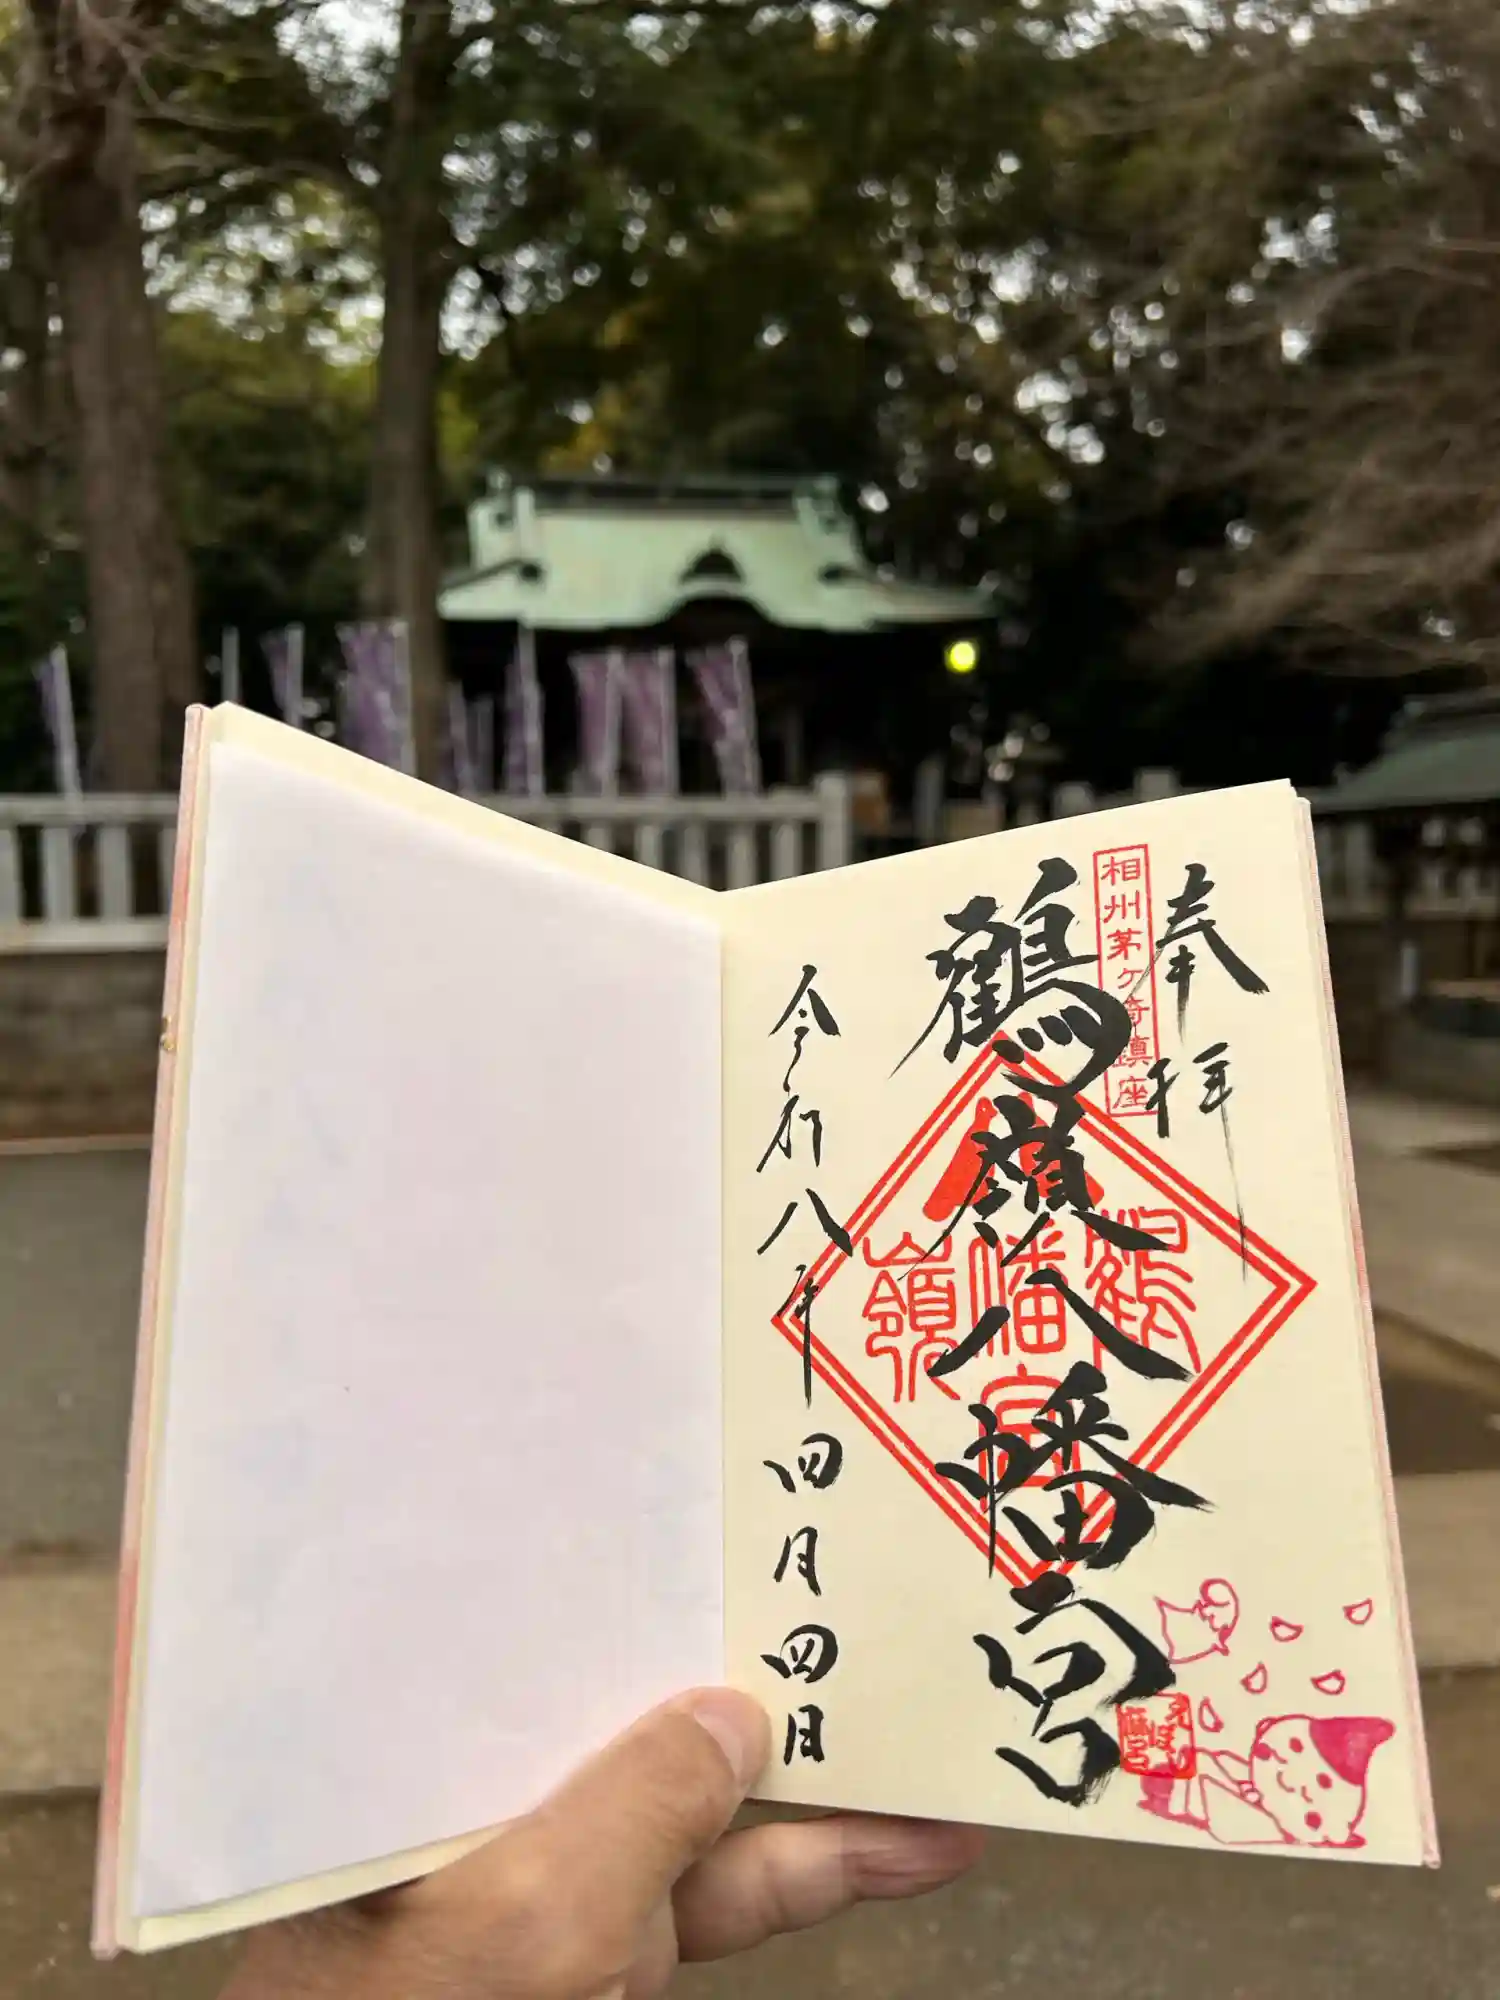 奉拝
相州茅ヶ崎鎮座
鶴嶺八幡宮
鶴
八幡宮
嶺
令和八年四月四日
えぼし
麻呂